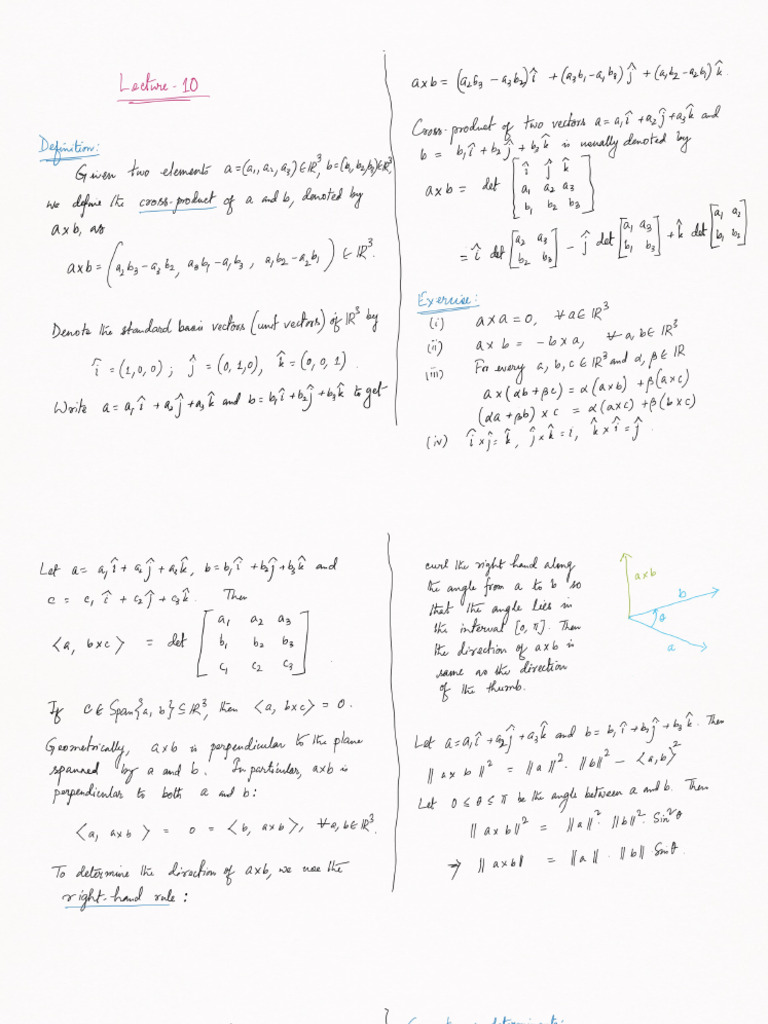 Lecture-10
Definition:
Given two elements a=(a₁,a₂,a₃)∈ℝ³, b=(b₁,b₂,b₃)∈ℝ³,
we define the cross-product of a and b, denoted by
a×b, as
a×b = (a₂b₃-a₃b₂, a₃b₁-a₁b₃, a₁b₂-a₂b₁) ∈ ℝ³.
Denote the standard basis vectors (unit vectors) of ℝ³ by
î = (1,0,0) ; ĵ = (0,1,0), k̂ = (0,0,1).
Write a = a₁î + a₂ĵ + a₃k̂ and b = b₁î + b₂ĵ + b₃k̂ to get
a×b = (a₂b₃ - a₃b₂)î + (a₃b₁-a₁b₃)ĵ + (a₁b₂-a₂b₁)k̂.
Cross-product of two vectors a = a₁î + a₂ĵ + a₃k̂ and
b = b₁î + b₂ĵ + b₃k̂ is usually denoted by
a×b = det [î ĵ k̂
a₁ a₂ a₃
b₁ b₂ b₃]
= î det [a₂ a₃ b₂ b₃] - ĵ det [a₁ a₃ b₁ b₃] + k̂ det [a₁ a₂ b₁ b₂]
Exercise:
(i) a×a = 0, ∀a∈ℝ³
(ii) a×b = -b×a, ∀a,b∈ℝ³
(iii) For every a, b, c∈ℝ³ and α, β∈ℝ
a×(αb+βc) = α(a×b) + β(a×c)
(αa+βb)×c = α(a×c) + β(b×c)
(iv) î×ĵ = k̂, ĵ×k̂ = i, k̂×î = ĵ
Let a = a₁î + a₂ĵ + a₃k̂, b = b₁î + b₂ĵ + b₃k̂ and
c = c₁î + c₂ĵ + c₃k̂. Then
⟨a, b×c⟩ = det [a₁ a₂ a₃
b₁ b₂ b₃
c₁ c₂ c₃].
If c∈Span{a, b}⊆ℝ³, then ⟨a, b×c⟩ = 0.
Geometrically, a×b is perpendicular to the plane
spanned by a and b. In particular, a×b is
perpendicular to both a and b:
⟨a, a×b⟩ = 0 = ⟨b, a×b⟩, ∀a,b∈ℝ³.
To determine the direction of a×b, we use the
right-hand rule:
curl the right hand along
the angle from a to b so
that the angle lies in
the interval [0, π]. Then
the direction of a×b is
same as the direction
of the thumb.
a×b
b
θ
a
Let a = a₁î + a₂ĵ + a₃k̂ and b = b₁î + b₂ĵ + b₃k̂. Then
‖a×b‖² = ‖a‖². ‖b‖² - ⟨a,b⟩²
Let 0 ≤ θ ≤ π be the angle between a and b. Then
‖a×b‖² = ‖a‖². ‖b‖². Sin²θ
⇒ ‖a×b‖ = ‖a‖. ‖b‖ Sinθ.